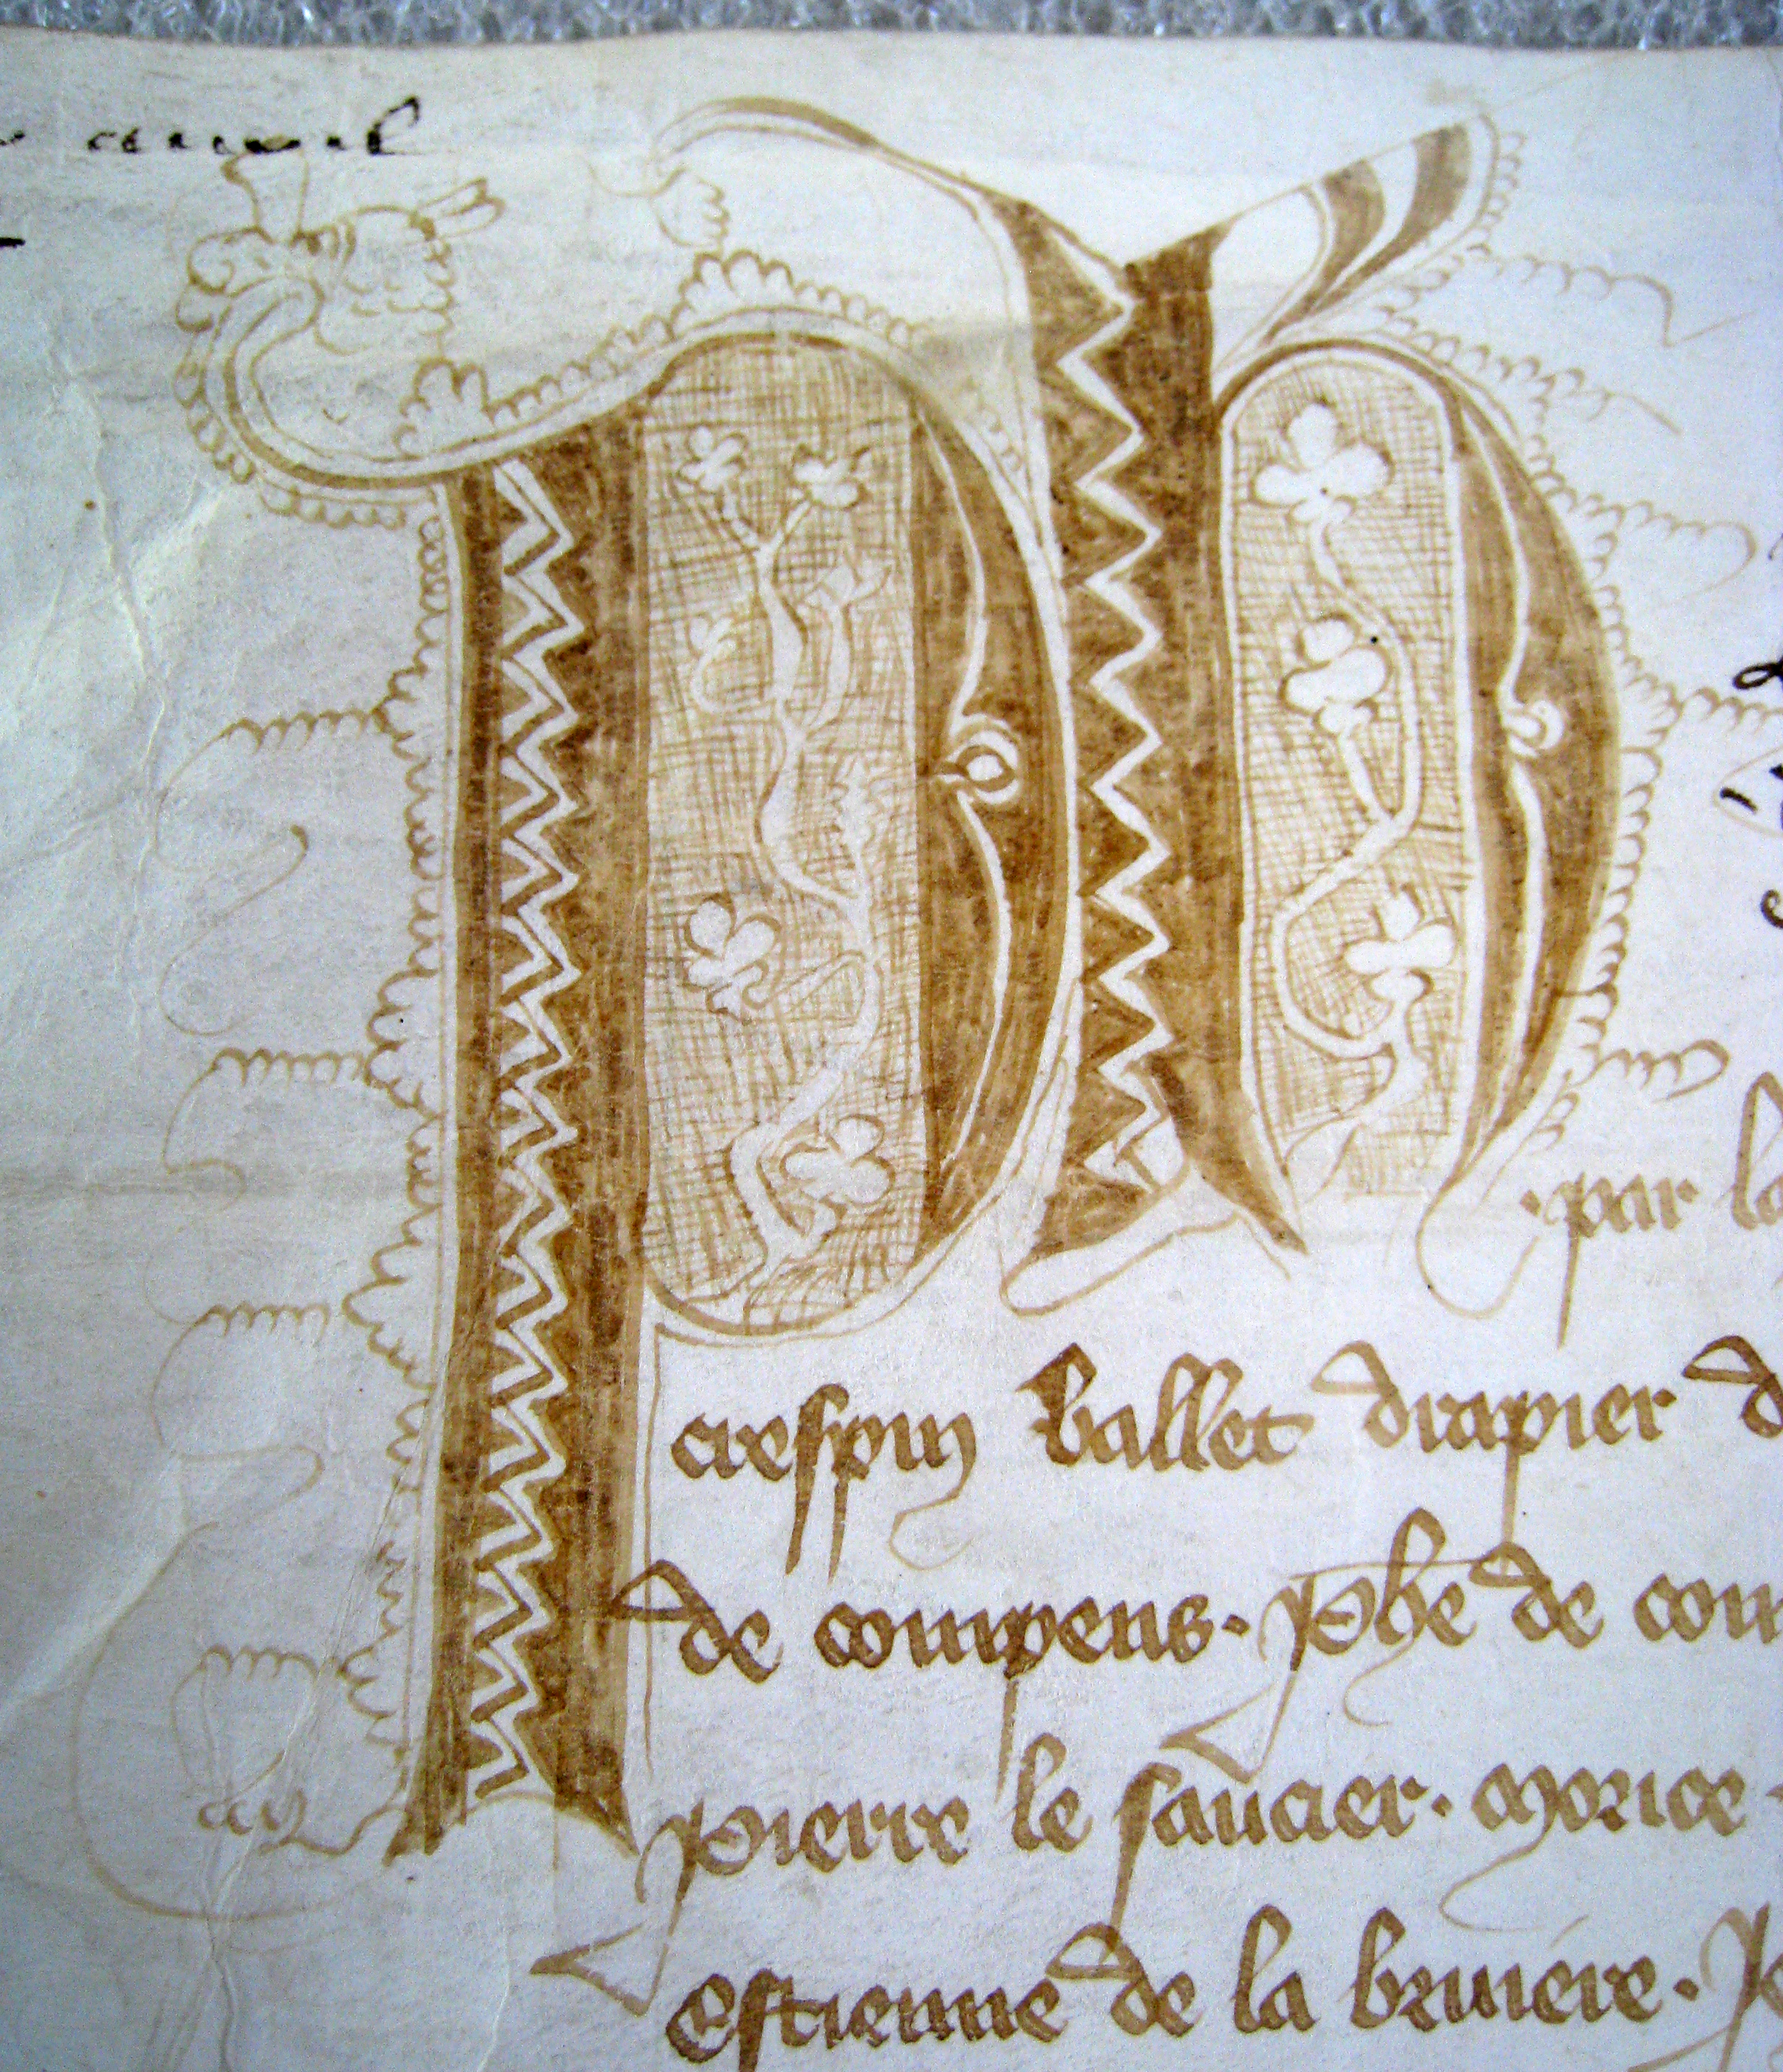 Ph
par la
crespin ballet drapier d
de compens. Phe de com
pierre le saucier. morice
Estienne de la bruiere. Je